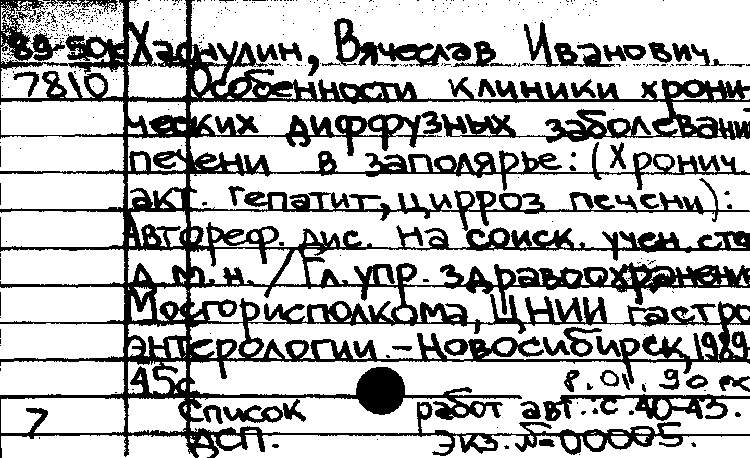 89-50к Хаснулин, Вячеслав Иванович.
7810 Особенности клиники хрони-
ческих диффузных заболевани
печени в заполярье: (Хронич.
акт. гепатит, цирроз печени):
Автореф. дис. на соиск. учен. сте
д.м.н. / Гл. упр. здравоохранени
Мосгорисполкома, ЦНИИ гастро
энтерологии. - Новосибирск, 1989
45с
Список работ авт.: с. 40-43.
7 ДСП. Экз. № 00005.